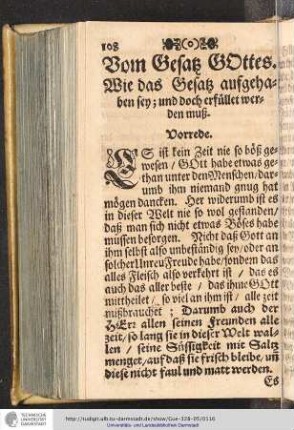 108
Vom Gesatz GOttes.
Wie das Gesatz aufgeha-
ben sey; und doch erfüllet wer-
den muß.
Vorrede.
ES ist kein Zeit nie so böß ge-
wesen / GOtt habe etwas ge-
than unter den Menschen / dar-
umb ihn niemand gnug hat
mögen dancken. Her widerumb ist es
in dieser Welt nie so wol gestanden /
daß man sich nicht etwas Böses habe
müssen besorgen. Nicht daß Gott an
ihm selbst also unbeständig sey / oder an
solcher Freude habe / sondern das
alles Fleisch also verkehrt ist / das es
auch das aller beste / das ihme GOtt
mittheilet / so viel an ihm ist / alle zeit
mißbrauchet; Darumb auch der
HErr allen seinen Freunden alle
zeit / so lang sie in dieser Welt wal-
len / seine Süssigkeit mit Saltz
menget / auf daß sie frisch bleibe / uñ
diese nicht faul und matt werden.
Es
TECHNISCHE
UNIVERSITÄT
DARMSTADT
http://tudigit.ulb.tu-darmstadt.de/show/Gue-328-05/0116
Universitäts- und Landesbibliothek Darmstadt